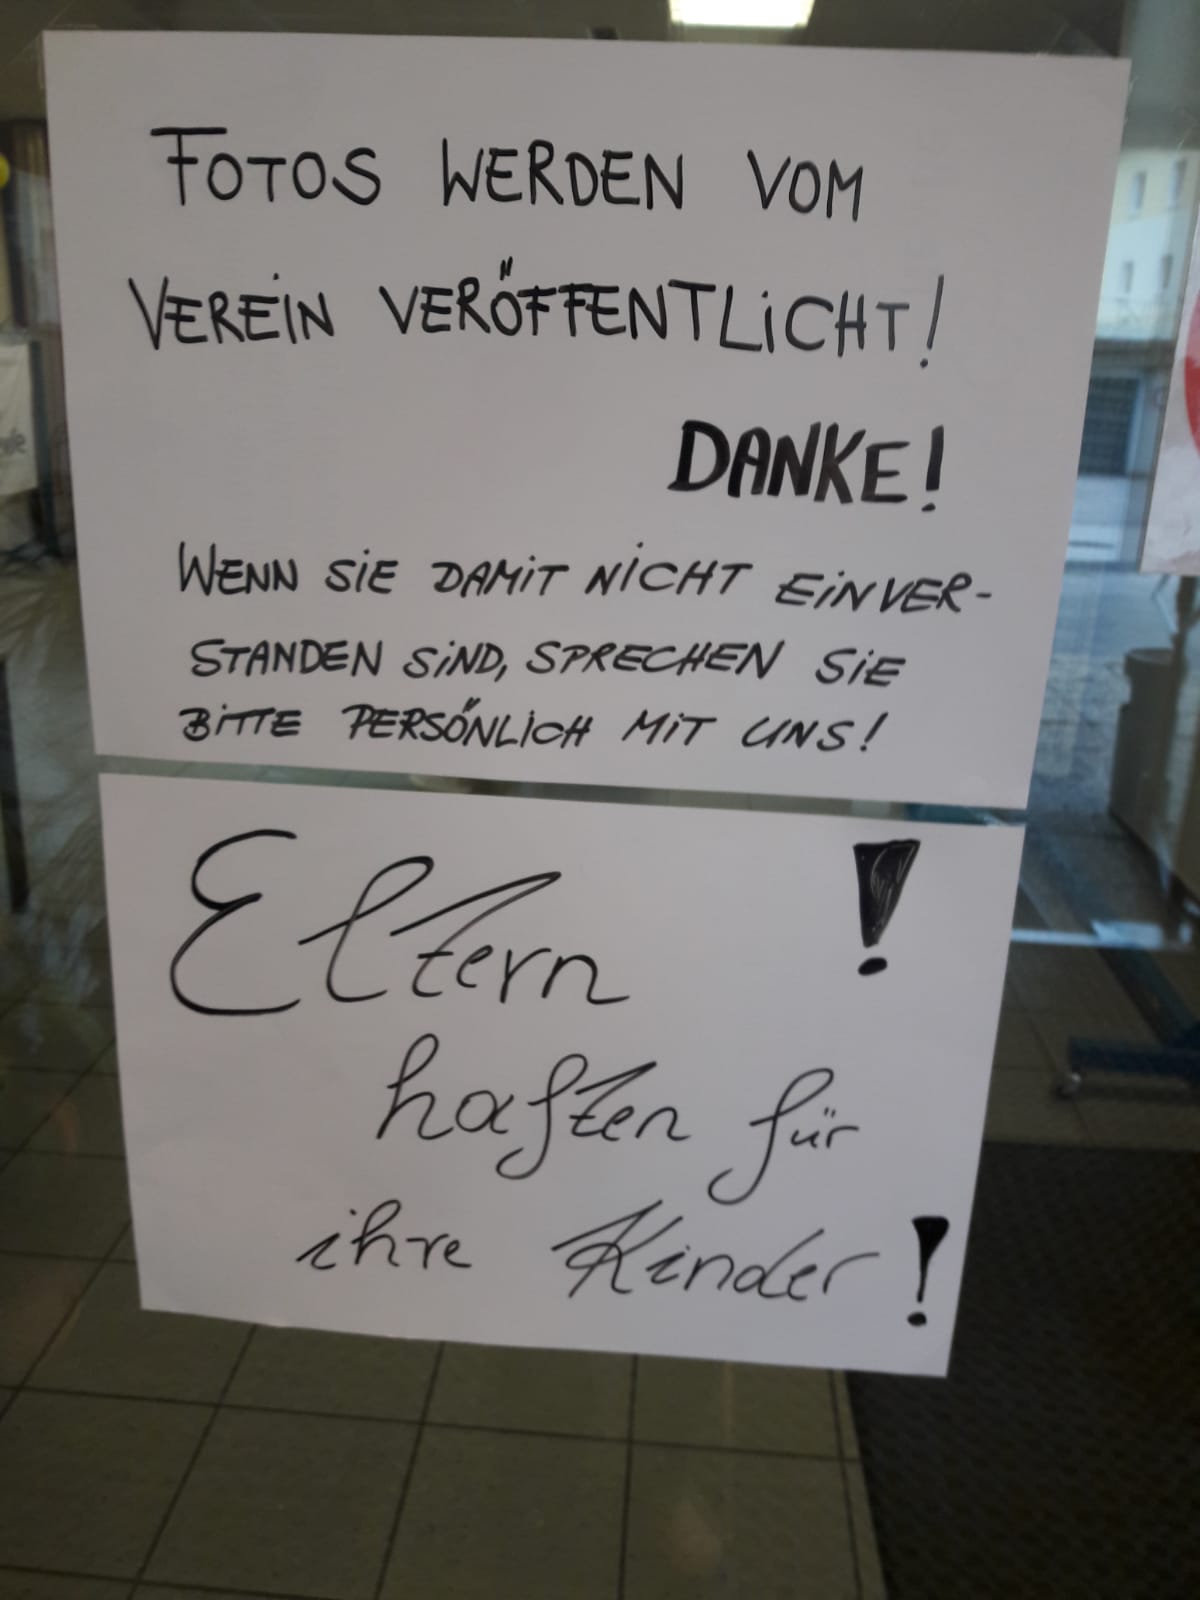 FOTOS WERDEN VOM
VEREIN VERÖFFENTLICHT!
DANKE!
WENN SIE DAMIT NICHT EINVER-
STANDEN SIND, SPRECHEN SIE
BITTE PERSÖNLICH MIT UNS!
Eltern !
haften für
ihre Kinder!